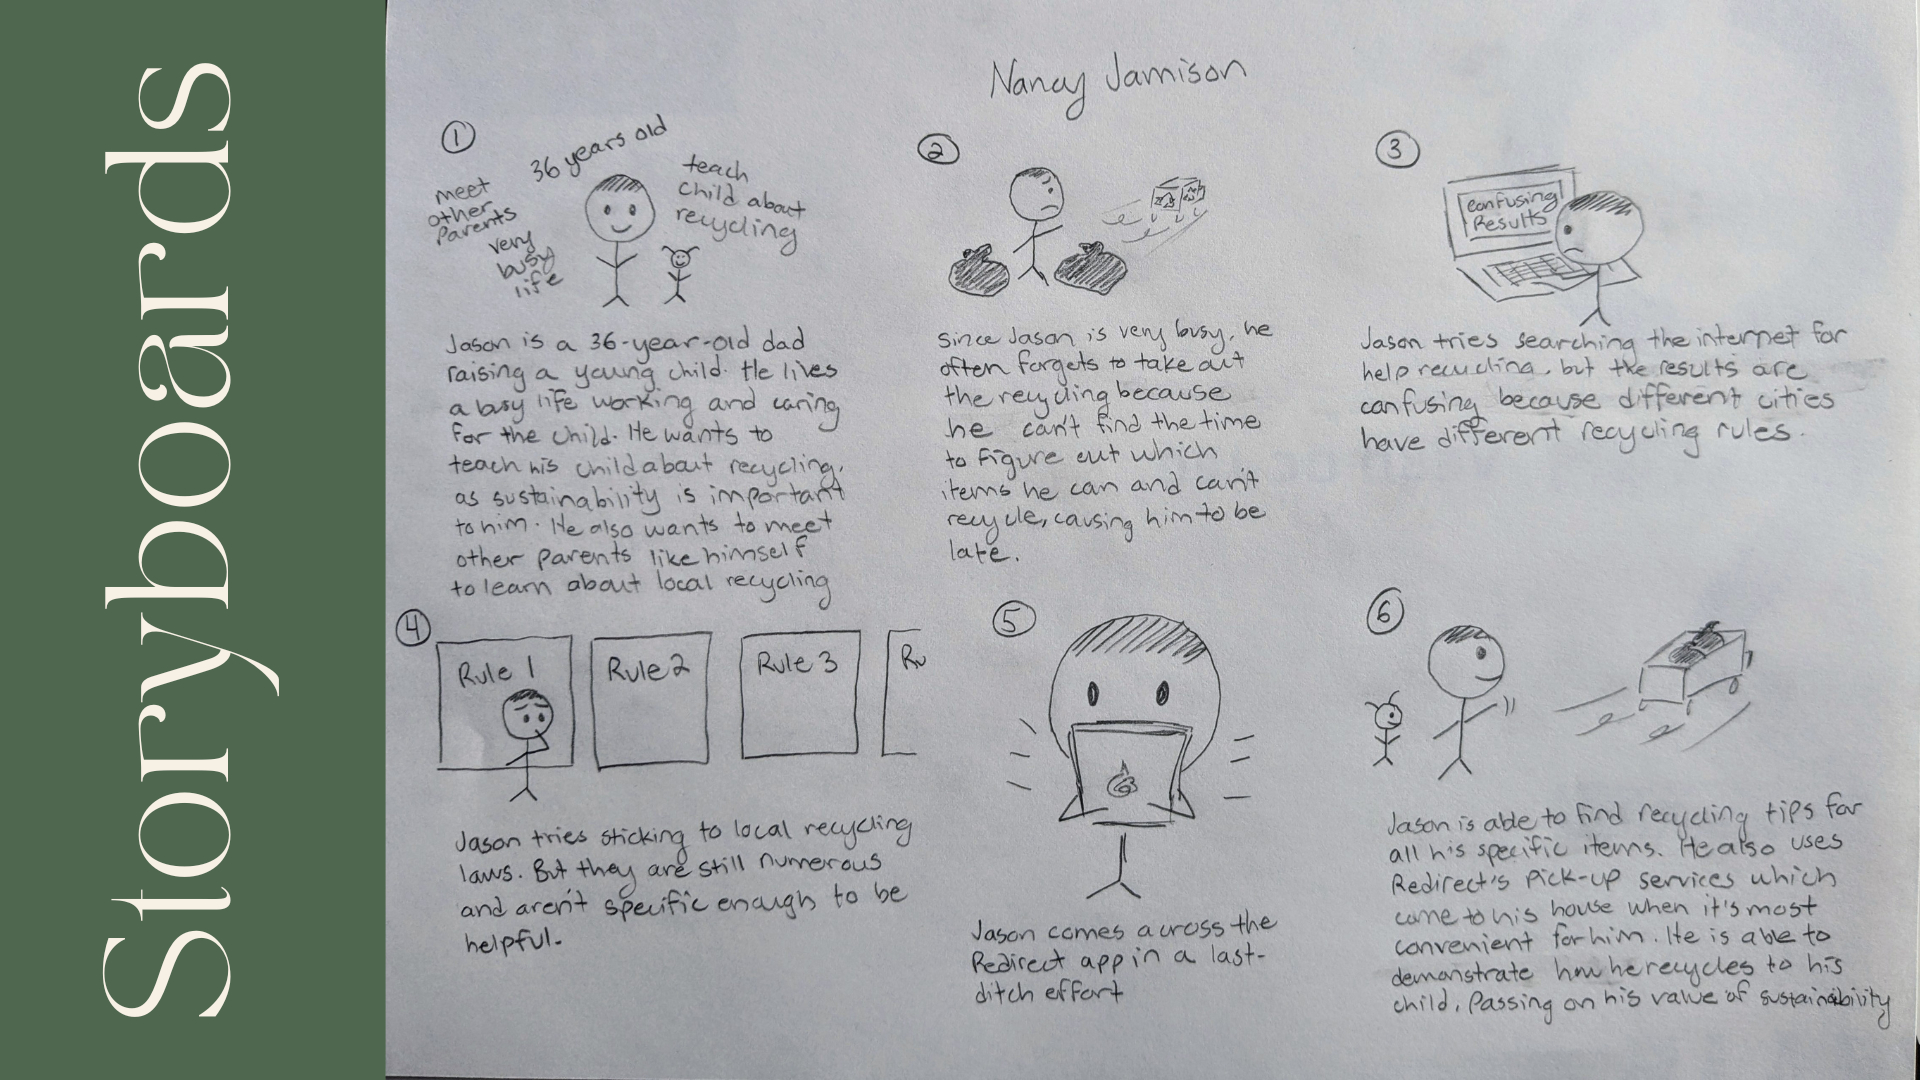 Storyboards
Nancy Jamison
1
36 years old
meet
other
parents
very
busy
life
teach
child about
recycling
Jason is a 36-year-old dad
raising a young child. He lives
a busy life working and caring
for the child. He wants to
teach his child about recycling,
as sustainability is important
to him. He also wants to meet
other parents like himself
to learn about local recycling
2
Since Jason is very busy, he
often forgets to take out
the recycling because
he can't find the time
to figure out which
items he can and can't
recycle, causing him to be
late.
3
confusing
Results
Jason tries searching the internet for
help recycling, but the results are
confusing because different cities
have different recycling rules.
4
Rule 1
Rule 2
Rule 3
Ru
Jason tries sticking to local recycling
laws. But they are still numerous
and aren't specific enough to be
helpful.
5
Jason comes across the
Redirect app in a last-
ditch effort
6
Jason is able to find recycling tips for
all his specific items. He also uses
Redirect's pick-up services which
come to his house when it's most
convenient for him. He is able to
demonstrate how he recycles to his
child, passing on his value of sustainability